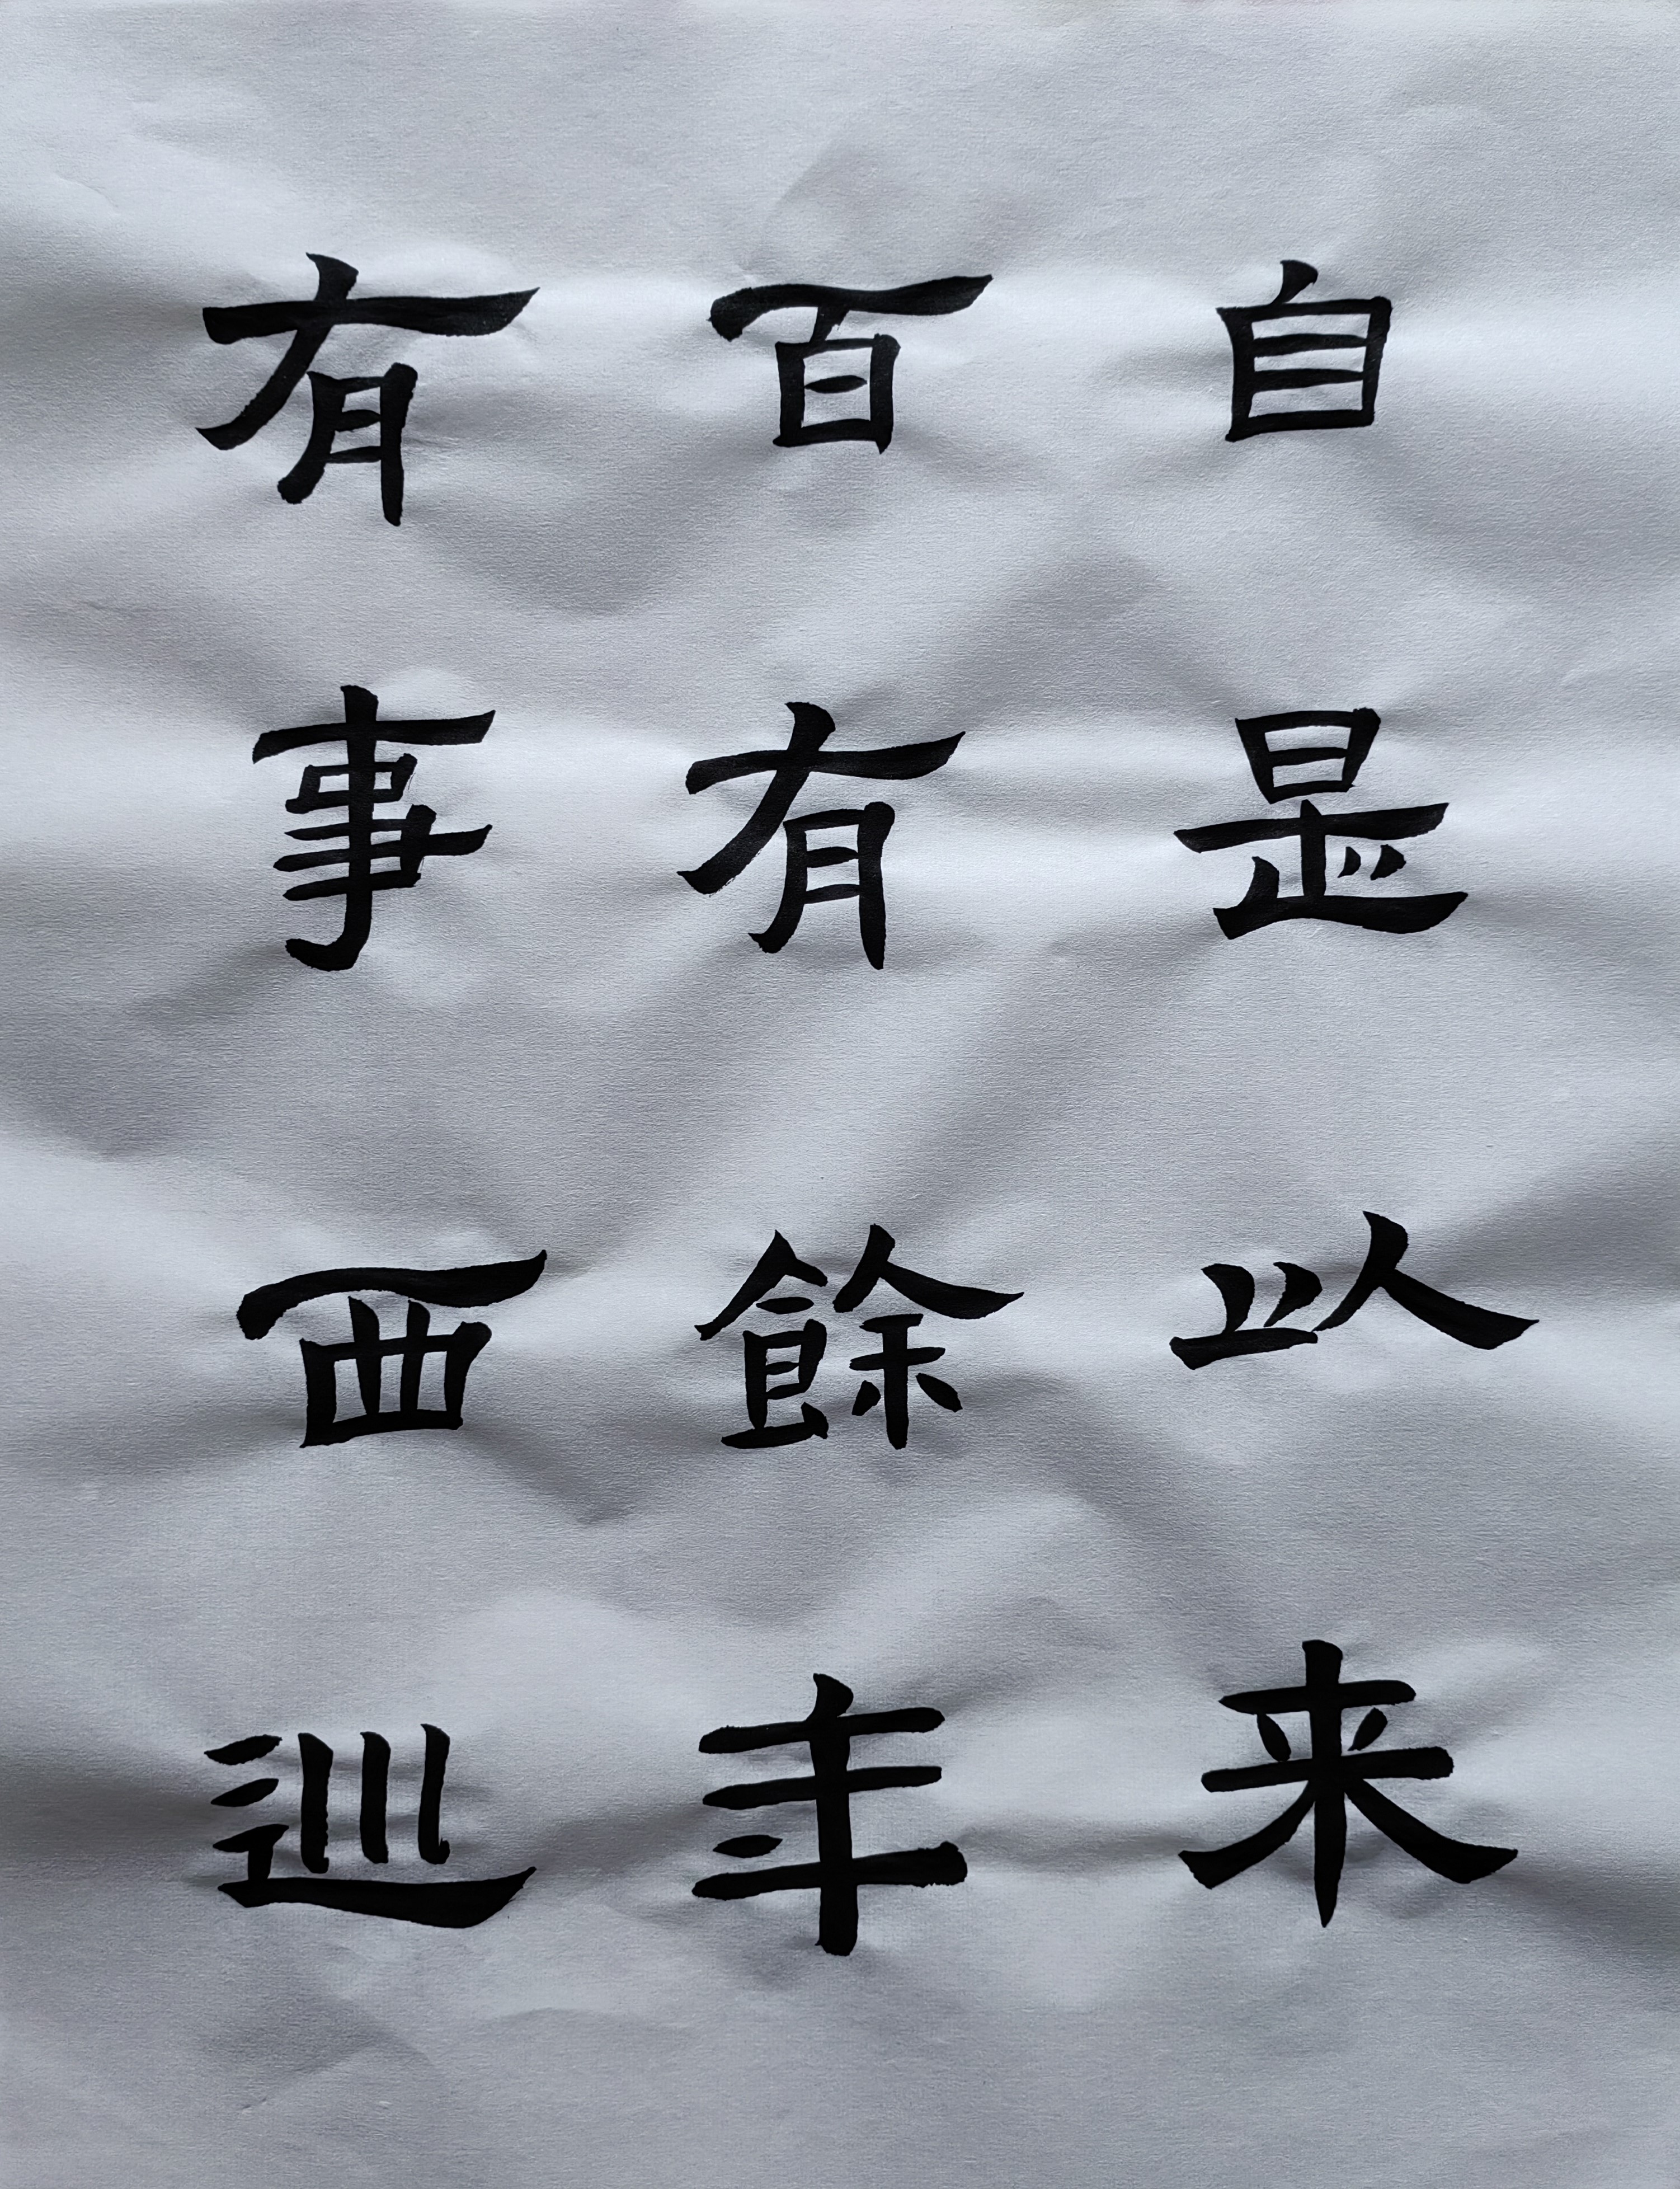 自是以来
百有餘年
有事西巡